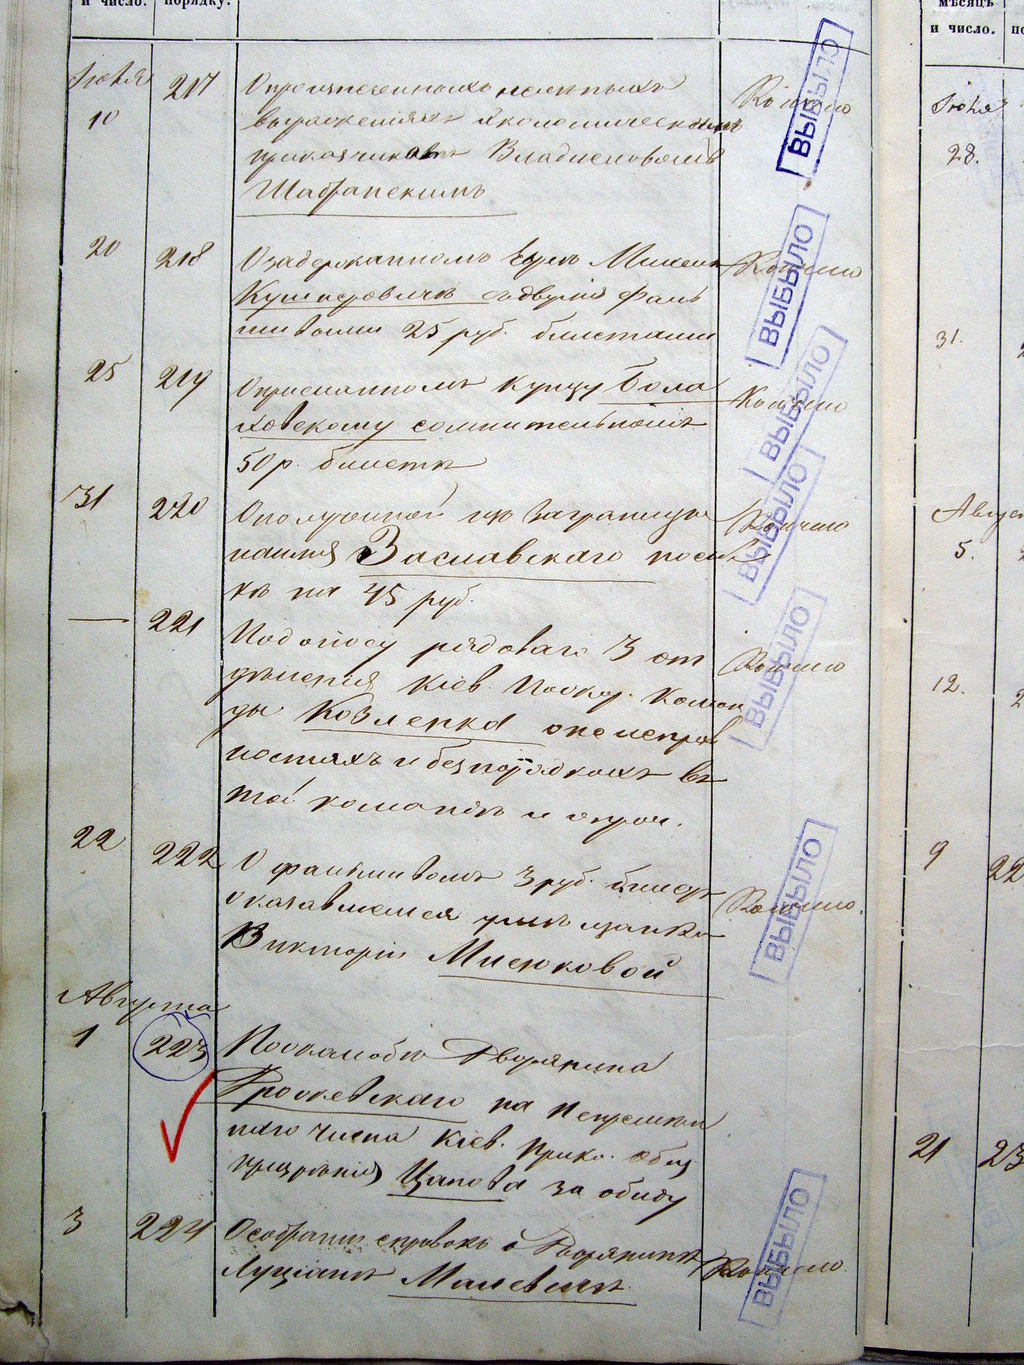 и число.
порядку.
Іюля
10
217
О произнесенныхъ нелепыхъ
выраженіяхъ экономическимъ
прикащикомъ Владиславомъ
Шабранскимъ
Кончено
ВЫБЫЛО
20
218
О задержанномъ Евр.
съ двумя фаль
шивыми 25 руб. билетами
Кончено
ВЫБЫЛО
25
219
О присланномъ купцу Бола
ховскому сомнительномъ
50 р. билетѣ
Кончено
ВЫБЫЛО
31
220
О полученной изъ заграницы
на имя Заславскаго посыл
кѣ на 45 руб.
Кончено
ВЫБЫЛО
—
221
По доносу рядоваго 3 от
дѣленія Кіев. Пожар. Коман
ды Козленка о неисправ
ностяхъ и безпорядкахъ въ
той командѣ и проч.
Кончено
ВЫБЫЛО
22
222
О фальшивомъ 3 руб. билетѣ
оказавшемся у
Викторіи Мисюковой
Кончено.
ВЫБЫЛО
Августа
1
223
По жалобѣ Дворянина
на
Кіев. Прик. Общ.
призрѣнія Цапова за обиду
3
224
О собраніи справокъ о Дворянинѣ
Луціанѣ Малевичѣ.
Кончено.
ВЫБЫЛО
мѣсяцъ
и число.
по
Іюля
28.
31.
Август
5.
12.
9
22
21
23